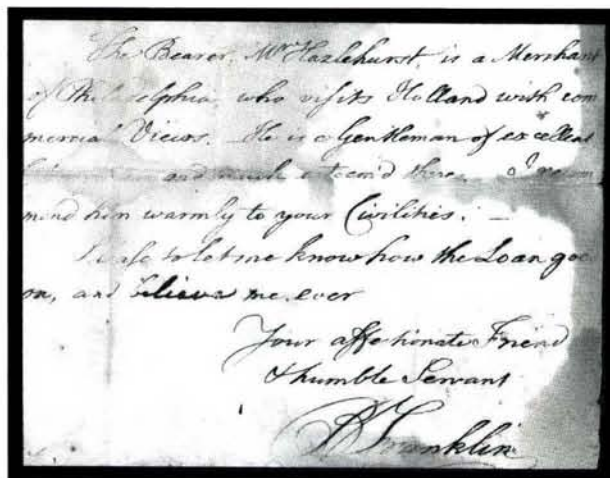 The Bearer, Mr Hazlehurst, is a Merchant
of Philadelphia, who visits Holland with com
mercial Views. He is a Gentleman of excellent
and much esteem'd there. I recom
mend him warmly to your Civilities. —
Please to let me know how the Loan goes
on, and believe me ever
Your affectionate Friend
& humble Servant
B Franklin